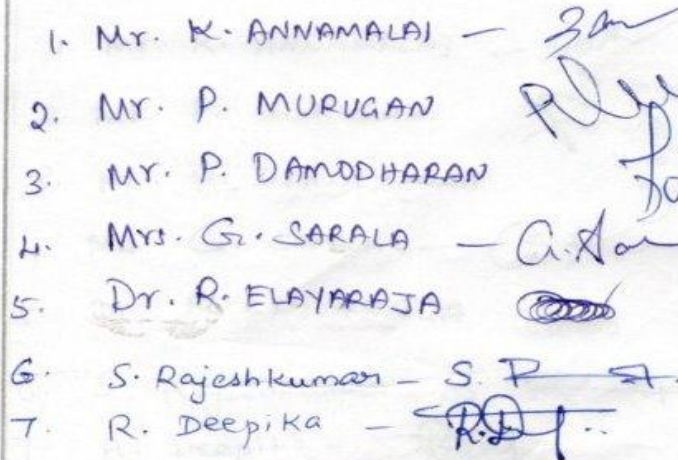 1. Mr. K. ANNAMALAI —
2. Mr. P. MURUGAN
3. Mr. P. DAMODHARAN
4. Mrs. G. SARALA — G. Sa
5. Dr. R. ELAYARAJA
6. S. Rajeshkumar — S. R
7. R. Deepika — R.D